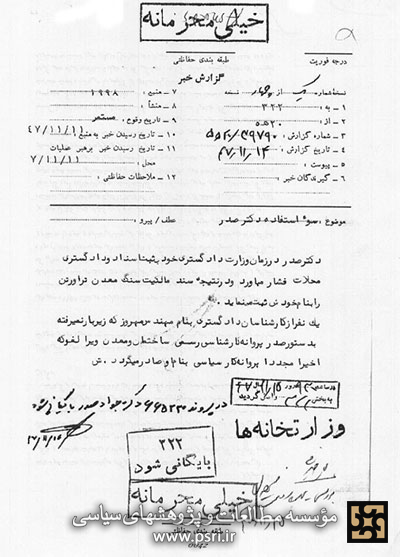 خیلی محرمانه
درجه فوریت
طبقه بندی حفاظتی
گزارش خبر
نسخه شماره یک از چهار نسخه
۱ – به : ۳۲۲
۲ – از : ۵۲۰
۳ – شماره گزارش : ۳۹۷۹۰ /
۴ – تاریخ گزارش : ۴۷/۱۱/۱۴
۵ – پیوست :
۶ – گیرندگان خبر :
۷ – منبع : ۱۹۹۸
۸ – منشأ :
۹ – تاریخ وقوع : مستمر
۱۰ – تاریخ رسیدن خبر به منبع : ۴۷/۱۱/۱۱
۱۱ – تاریخ رسیدن خبر برهبر عملیات ۷/۱۱/۱۱
محل :
۱۲ – ملاحظات حفاظتی :
موضوع : سوء استفاده دکتر صدر
عطف / پیرو :
دکتر صدر در زمان وزارت دادگستری خود به ثبت اسناد و دادگستری
محلات فشار میاورد و در نتیجه سند مالکیت سنگ معدن تراورتن
را بنام خود ثبت مینماید .
یک نفر از کارشناسان دادگستری بنام مهندس مهروز که زیر بار نمیرفته
بدستور صدر پروانه کارشناسی رسمی ساختمان و معدن ویرا لغو که
اخیرا مجددا پروانه کار سیاسی بنام او صادر میگردد . ش
در پرونده دکتر جواد صدر بایگانی شود
وزارتخانه ها
۳۲۲
بایگانی شود
خیلی محرمانه
طبقه بندی حفاظتی
مؤسسه مطالعات و پژوهشهای سیاسی
www.psri.ir